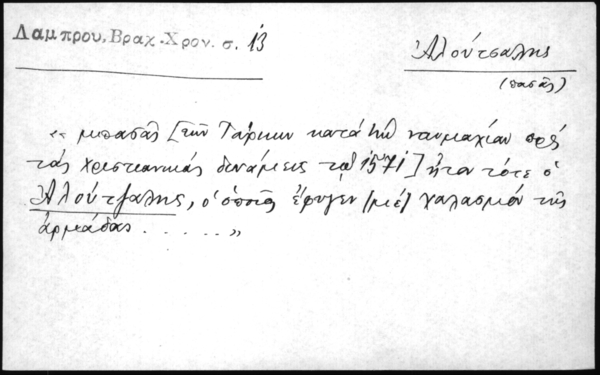 Λαμπρου, Βραχ. Χρον. σ. 13
Ἀλούτσαλης
(πασᾶς)
"μπασᾶς [τῶν Τούρκων κατὰ τὴν ναυμαχίαν πρὸς
τὰς χριστιανικὰς δυνάμεις τοῦ 1571] ἦταν τότε ὁ
Ἀλούτζαλης, ὁ ὁποῖος ἔφυγεν [μὲ] χαλασμὸν τῆς
ἀρμάδας . . . . . . "